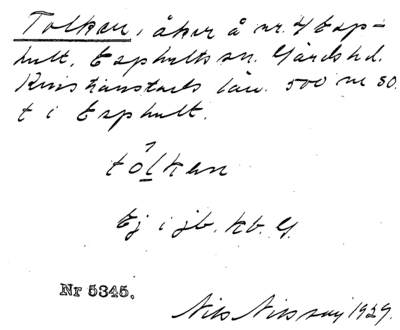 Tolken, åker å nr. 4 Esp-
hult, Esphults sn. Gärds hd.
Kristianstads län. 500 m SO.
t i Esphult.
tólken
Ej i jb. kb. G.
Nr 5345.
Nils Nilsson 1929.